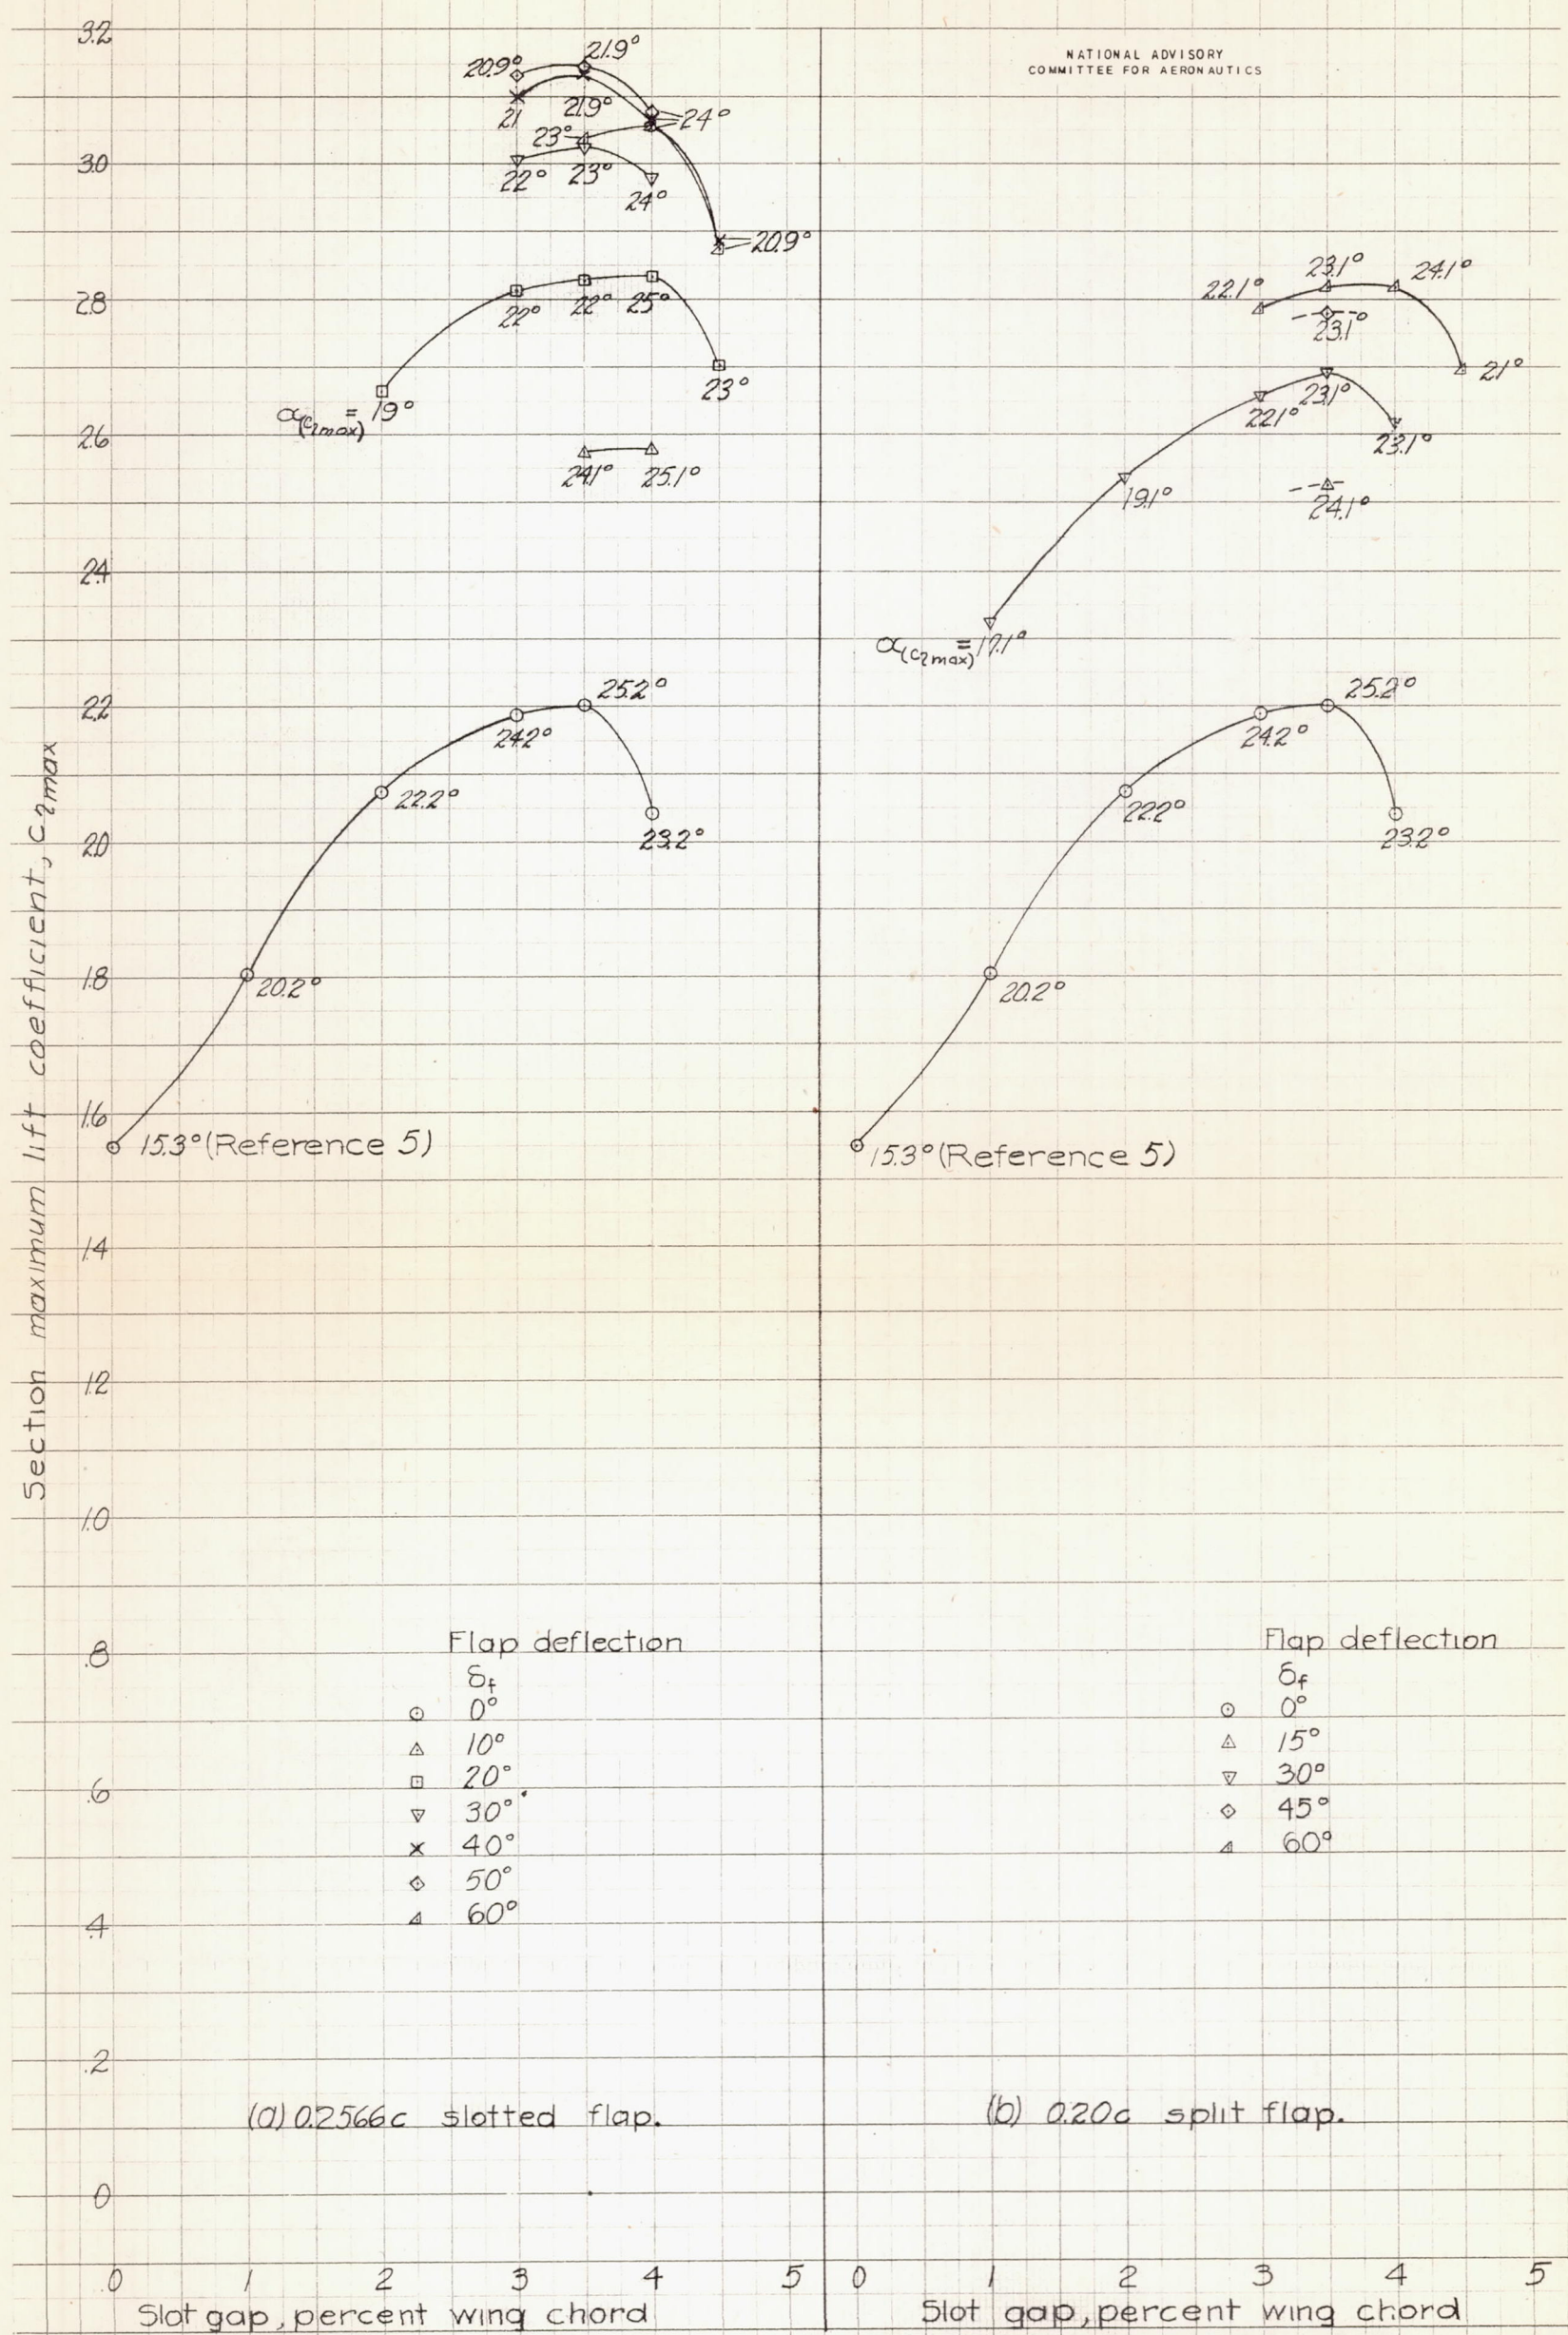 NATIONAL ADVISORY
COMMITTEE FOR AERONAUTICS
Section maximum lift coefficient, clmax
3.2
3.0
2.8
2.6
2.4
2.2
2.0
1.8
1.6
1.4
1.2
1.0
.8
.6
.4
.2
0
20.9°
21.9°
21
21.9°
24°
23°
22°
23°
24°
20.9°
22°
22°
25°
23°
α(clmax) = 19°
24.1°
25.1°
25.2°
24.2°
22.2°
23.2°
20.2°
15.3° (Reference 5)
Flap deflection
δf
0°
10°
20°
30°
40°
50°
60°
(a) 0.2566c slotted flap.
0 1 2 3 4 5
Slot gap, percent wing chord
22.1°
23.1°
24.1°
23.1°
21°
23.1°
22.1°
23.1°
19.1°
24.1°
α(clmax) = 17.1°
25.2°
24.2°
22.2°
23.2°
20.2°
15.3° (Reference 5)
Flap deflection
δf
0°
15°
30°
45°
60°
(b) 0.20c split flap.
0 1 2 3 4 5
Slot gap, percent wing chord